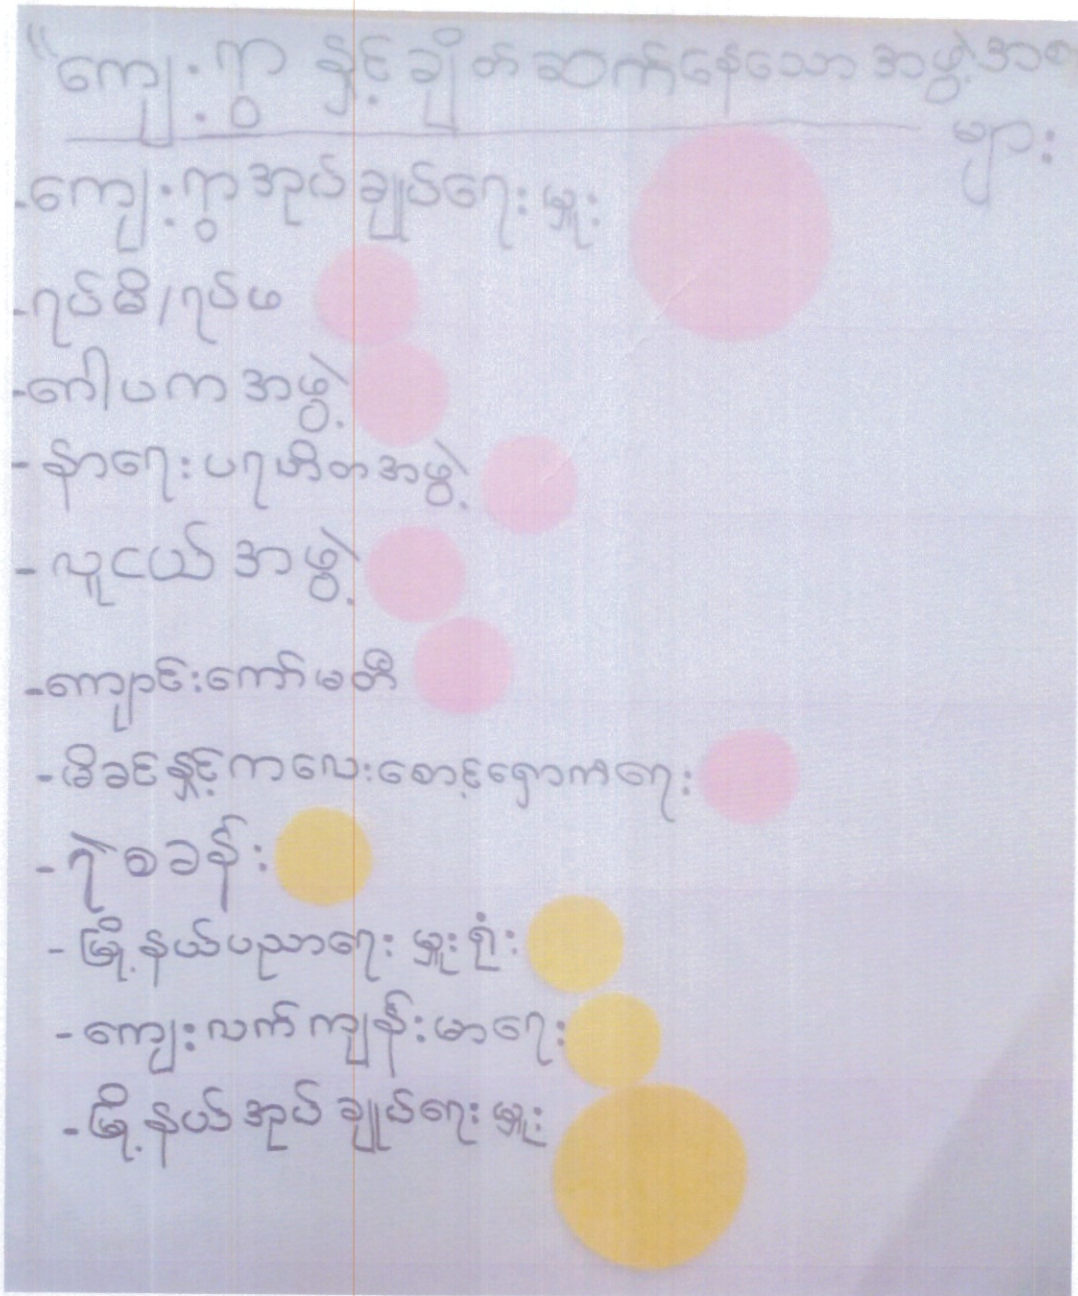 “ကျေးရွာ နှင့်ချိတ်ဆက်နေသော အဖွဲ့အစ
များ
-ကျေးရွာအုပ်ချုပ်ရေးမှူး
-ရပ်မိ/ရပ်ဖ
-ဂေါပကအဖွဲ့
-နာရေးပရဟိတအဖွဲ့
-လူငယ်အဖွဲ့
-ကျောင်းကော်မတီ
-မိခင်နှင့်ကလေးစောင့်ရှောက်ရေး
-ရဲစခန်း
-မြို့နယ်ပညာရေးမှူးရုံး
-ကျေးလက်ကျန်းမာရေး
-မြို့နယ်အုပ်ချုပ်ရေးမှူး